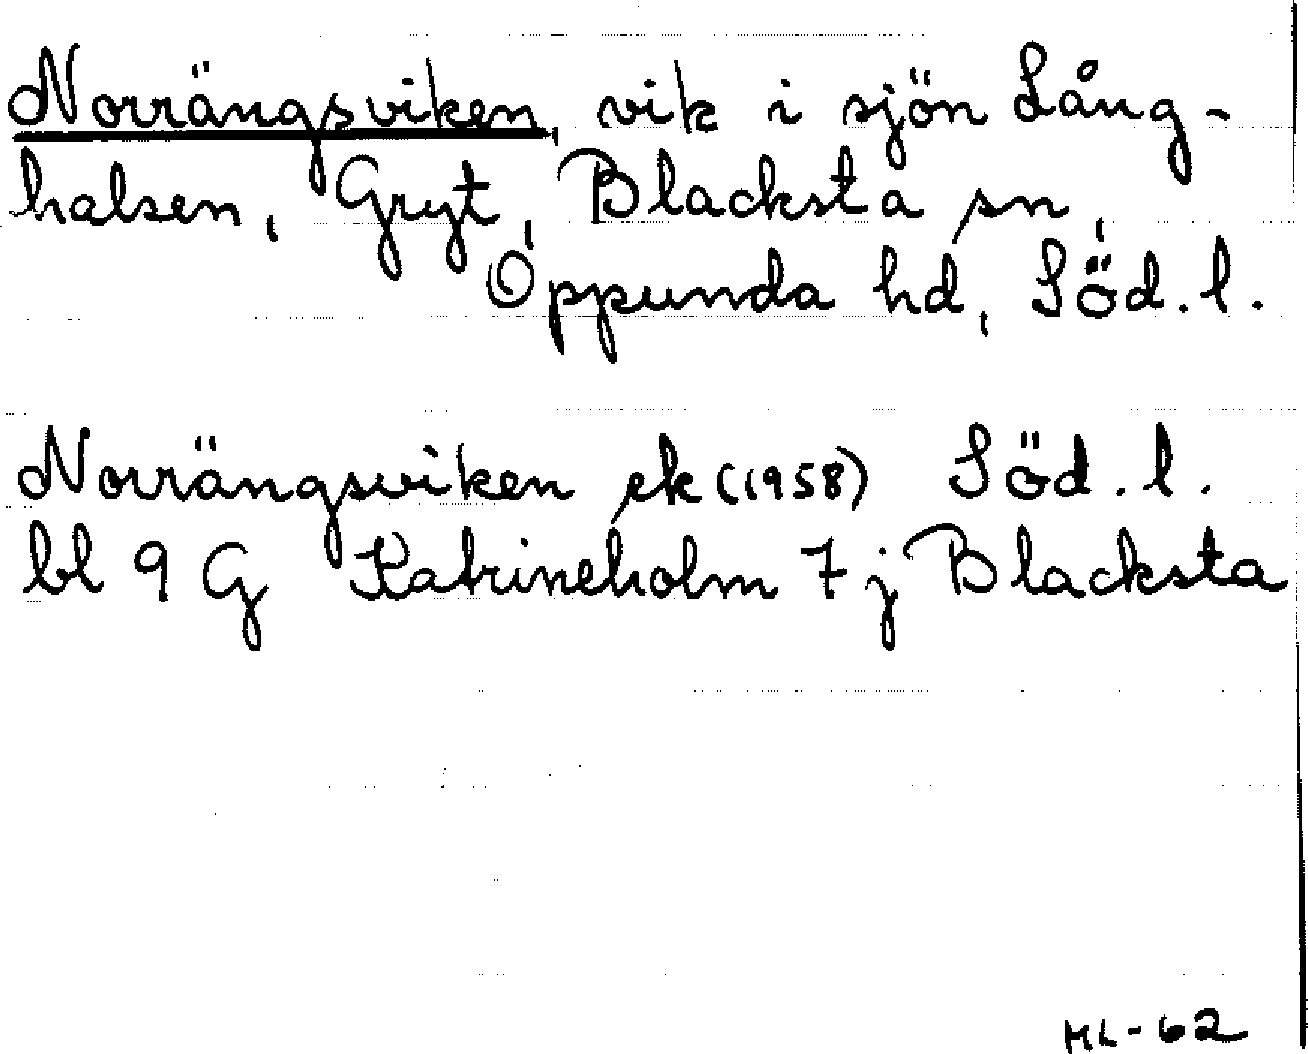 Norrängsviken, vik i sjön Lång-
halsen, Gryt, Blacksta sn,
Oppunda hd, Söd. l.
Norrängsviken ek (1958) Söd. l.
bl 9 G Katrineholm 7 j Blacksta
ML-62